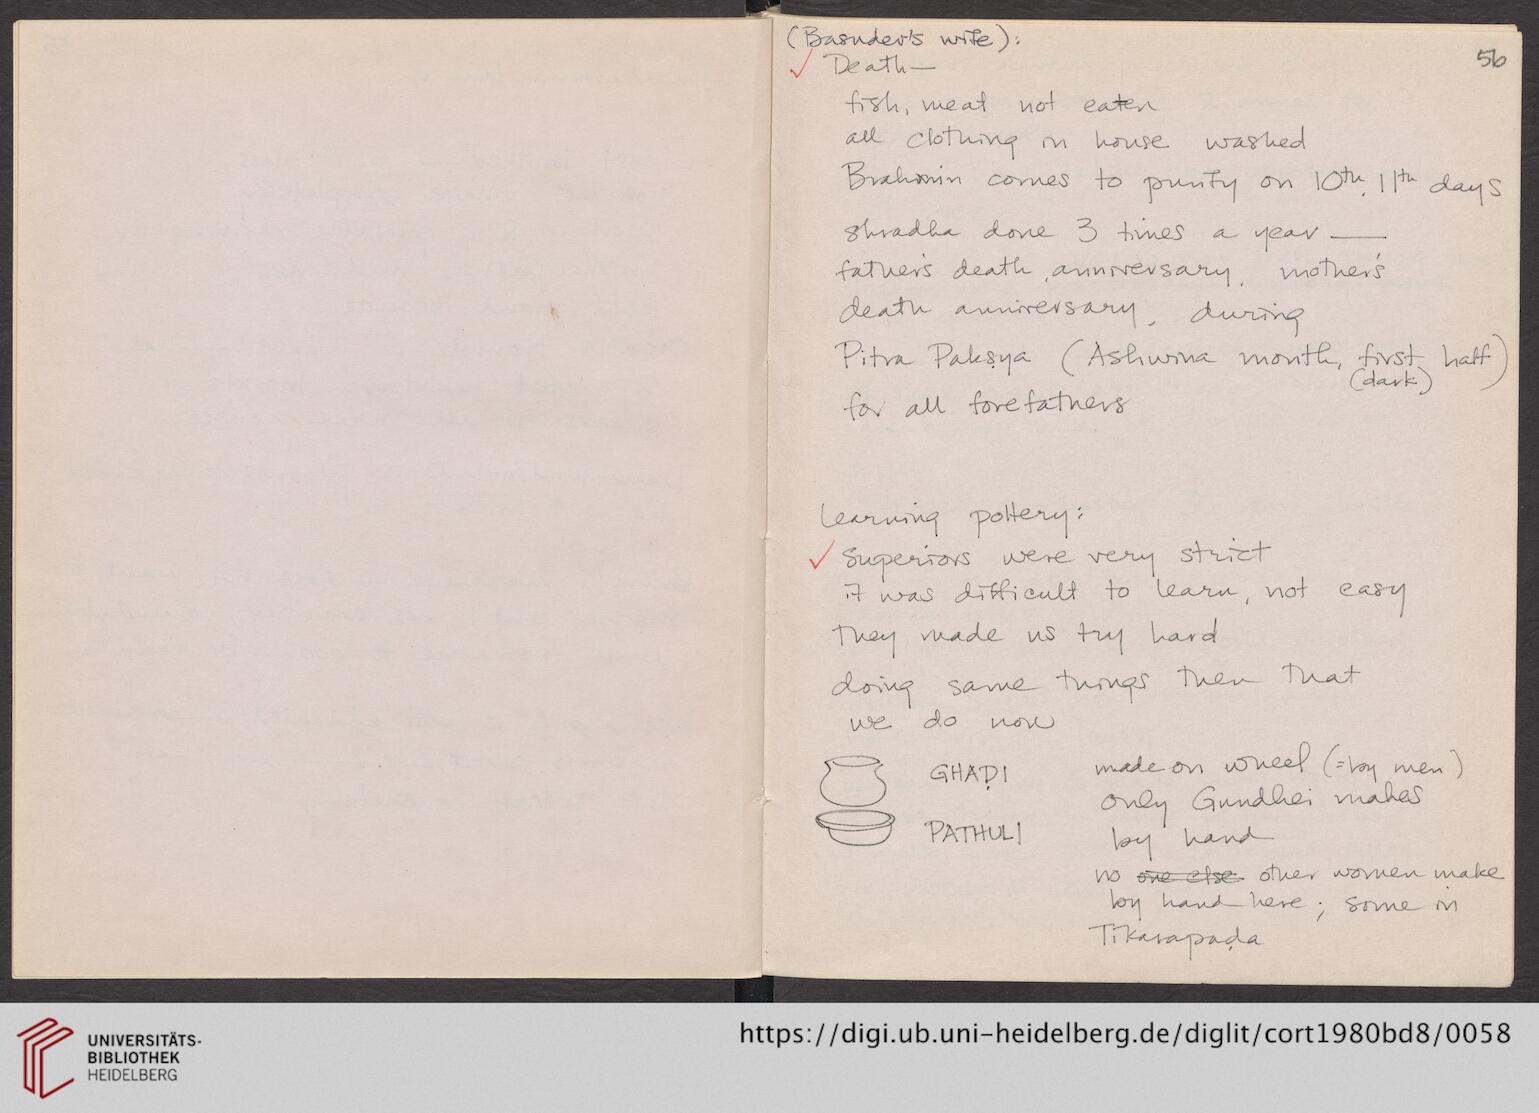 (Basudev's wife):
56
✓ Death —
fish, meat not eaten
all clothing in house washed
Brahmin comes to purify on 10th, 11th days
shradha done 3 times a year —
father's death anniversary, mother's
death anniversary, during
Pitra Pakṣya (Ashwina month, first half)
(dark)
for all forefathers
Learning pottery:
✓ Superiors were very strict
it was difficult to learn, not easy
They made us try hard
doing same things then that
we do now
GHAḌI made on wheel (= by men)
only Gundhei makes
PATHULI by hand
no one else other women make
by hand here; some in
Tikarapaḍa
UNIVERSITÄTS-
BIBLIOTHEK
HEIDELBERG
https://digi.ub.uni-heidelberg.de/diglit/cort1980bd8/0058